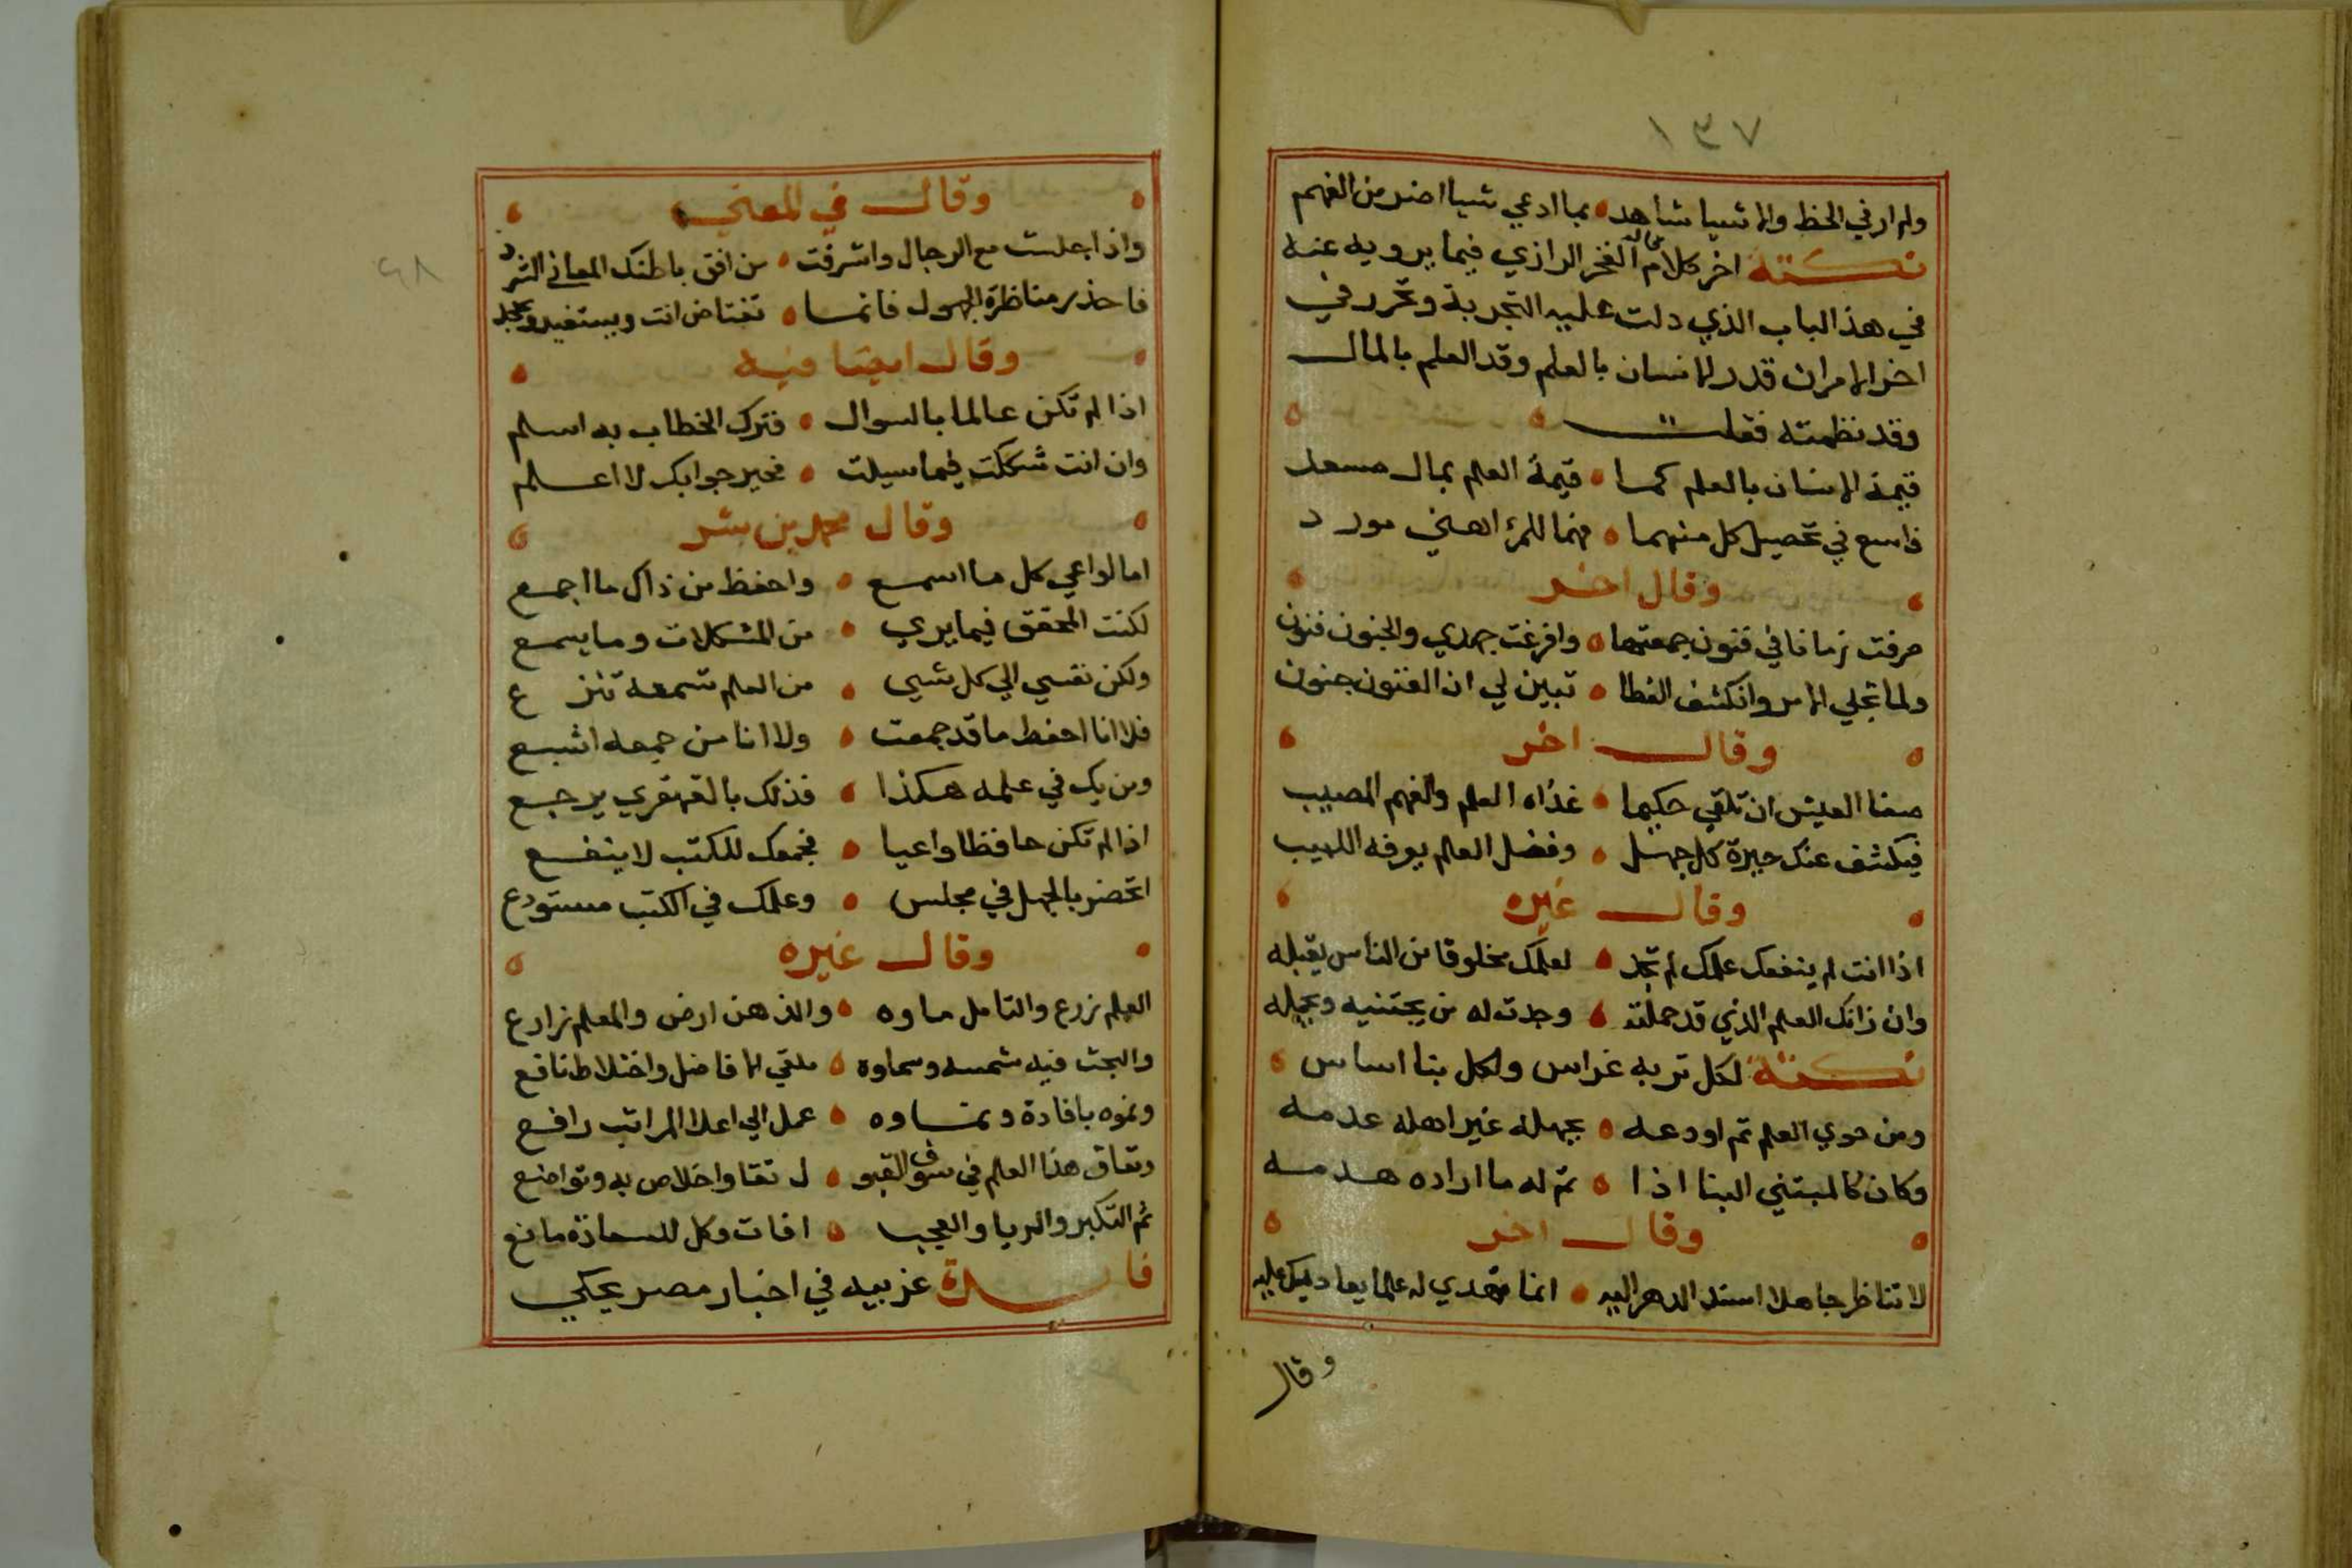 ١٣٧
ولم ار في الخط والاشيا شاهد ۰ بما ادعي شيا اضر من الفهم
نكتة اخر كلام الفخر الرازي فيما يرويه عنه
في هذا الباب الذي دلت عليه التجربة وتحرر في
اخر الامر ان قدر الانسان بالعلم وقد العلم بالمال
وقد نظمته فقلت
قيمة الانسان بالعلم كما ۰ قيمة العلم بمال مسعد
فاسع في تحصيل كل منهما ۰ فهما للمرء اهني مورد
وقال اخر
صرفت زمانا في فنون جمعتها ۰ وافرغت جهدي والجنون فنون
ولما تجلي الامر وانكشف الغطا ۰ تبين لي ان الفنون جنون
وقال اخر
صفا العيش ان تلقي حكيما ۰ غذاه العلم والفهم المصيب
فيكشف عنك حيرة كل جهل ۰ وفضل العلم يعرفه اللبيب
وقال غيره
اذا انت لم ينفعك علمك لم تجد ۰ لعلمك مخلوقا من الناس يقبله
وان زانك العلم الذي قد حملته ۰ وجدت له من يجتنيه ويحمله
نكتة لكل تربه غراس ولكل بنا اساس
ومن حوي العلم ثم اودعه ۰ بجهله غير اهله عدمه
وكان كالمبتني البنا اذا ۰ تم له ما اراده هدمه
وقال اخر
لا تناظر جاهلا اسند الدهر اليه ۰ انما تهدي له علما يعاديك عليه
وقال
٤٨
وقال في المعني
واذا جلست مع الرجال واشرقت ۰ من افق باطنك المعاني الشرد
فاحذر مناظرة الجهول فانما ۰ تغتاض انت ويستفيد ويجحد
وقال ايضا فيه
اذا لم تكن عالما بالسوال ۰ فترك الخطاب به اسلم
وان انت شككت فيما سيلت ۰ فخير جوابك لا اعلم
وقال محمد بن بشر
اما لو اعي كل ما اسمع ۰ واحفظ من ذاك ما اجمع
لكنت المحقق فيما يري ۰ من المشكلات وما يسمع
ولكن نفسي الي كل شيي ۰ من العلم تسمعه تنزع
فلا انا احفط ما قد جمعت ۰ ولا انا من جمعه اشبع
ومن يك في علمه هكذا ۰ فذلك بالقهقري يرجع
اذا لم تكن حافظا واعيا ۰ فجمعك للكتب لا ينفع
اتحضر بالجهل في مجلس ۰ وعلمك في الكتب مستودع
وقال غيره
العلم زرع والتامل ماوه ۰ والذهن ارض والمعلم زارع
والبحث فيه شمسه وسماوه ۰ ملقي الافاضل واختلاط نافع
ونموه بافادة ونماوه ۰ عمل الي اعلا المراتب رافع
ونفاق هذا العلم في سوق القبو ۰ ل تقا واخلاص به وتواضع
ثم التكبر والريا والعجب ۰ افات وكل للسعادة مانع
فائدة غريبيه في اخبار مصر يحكي